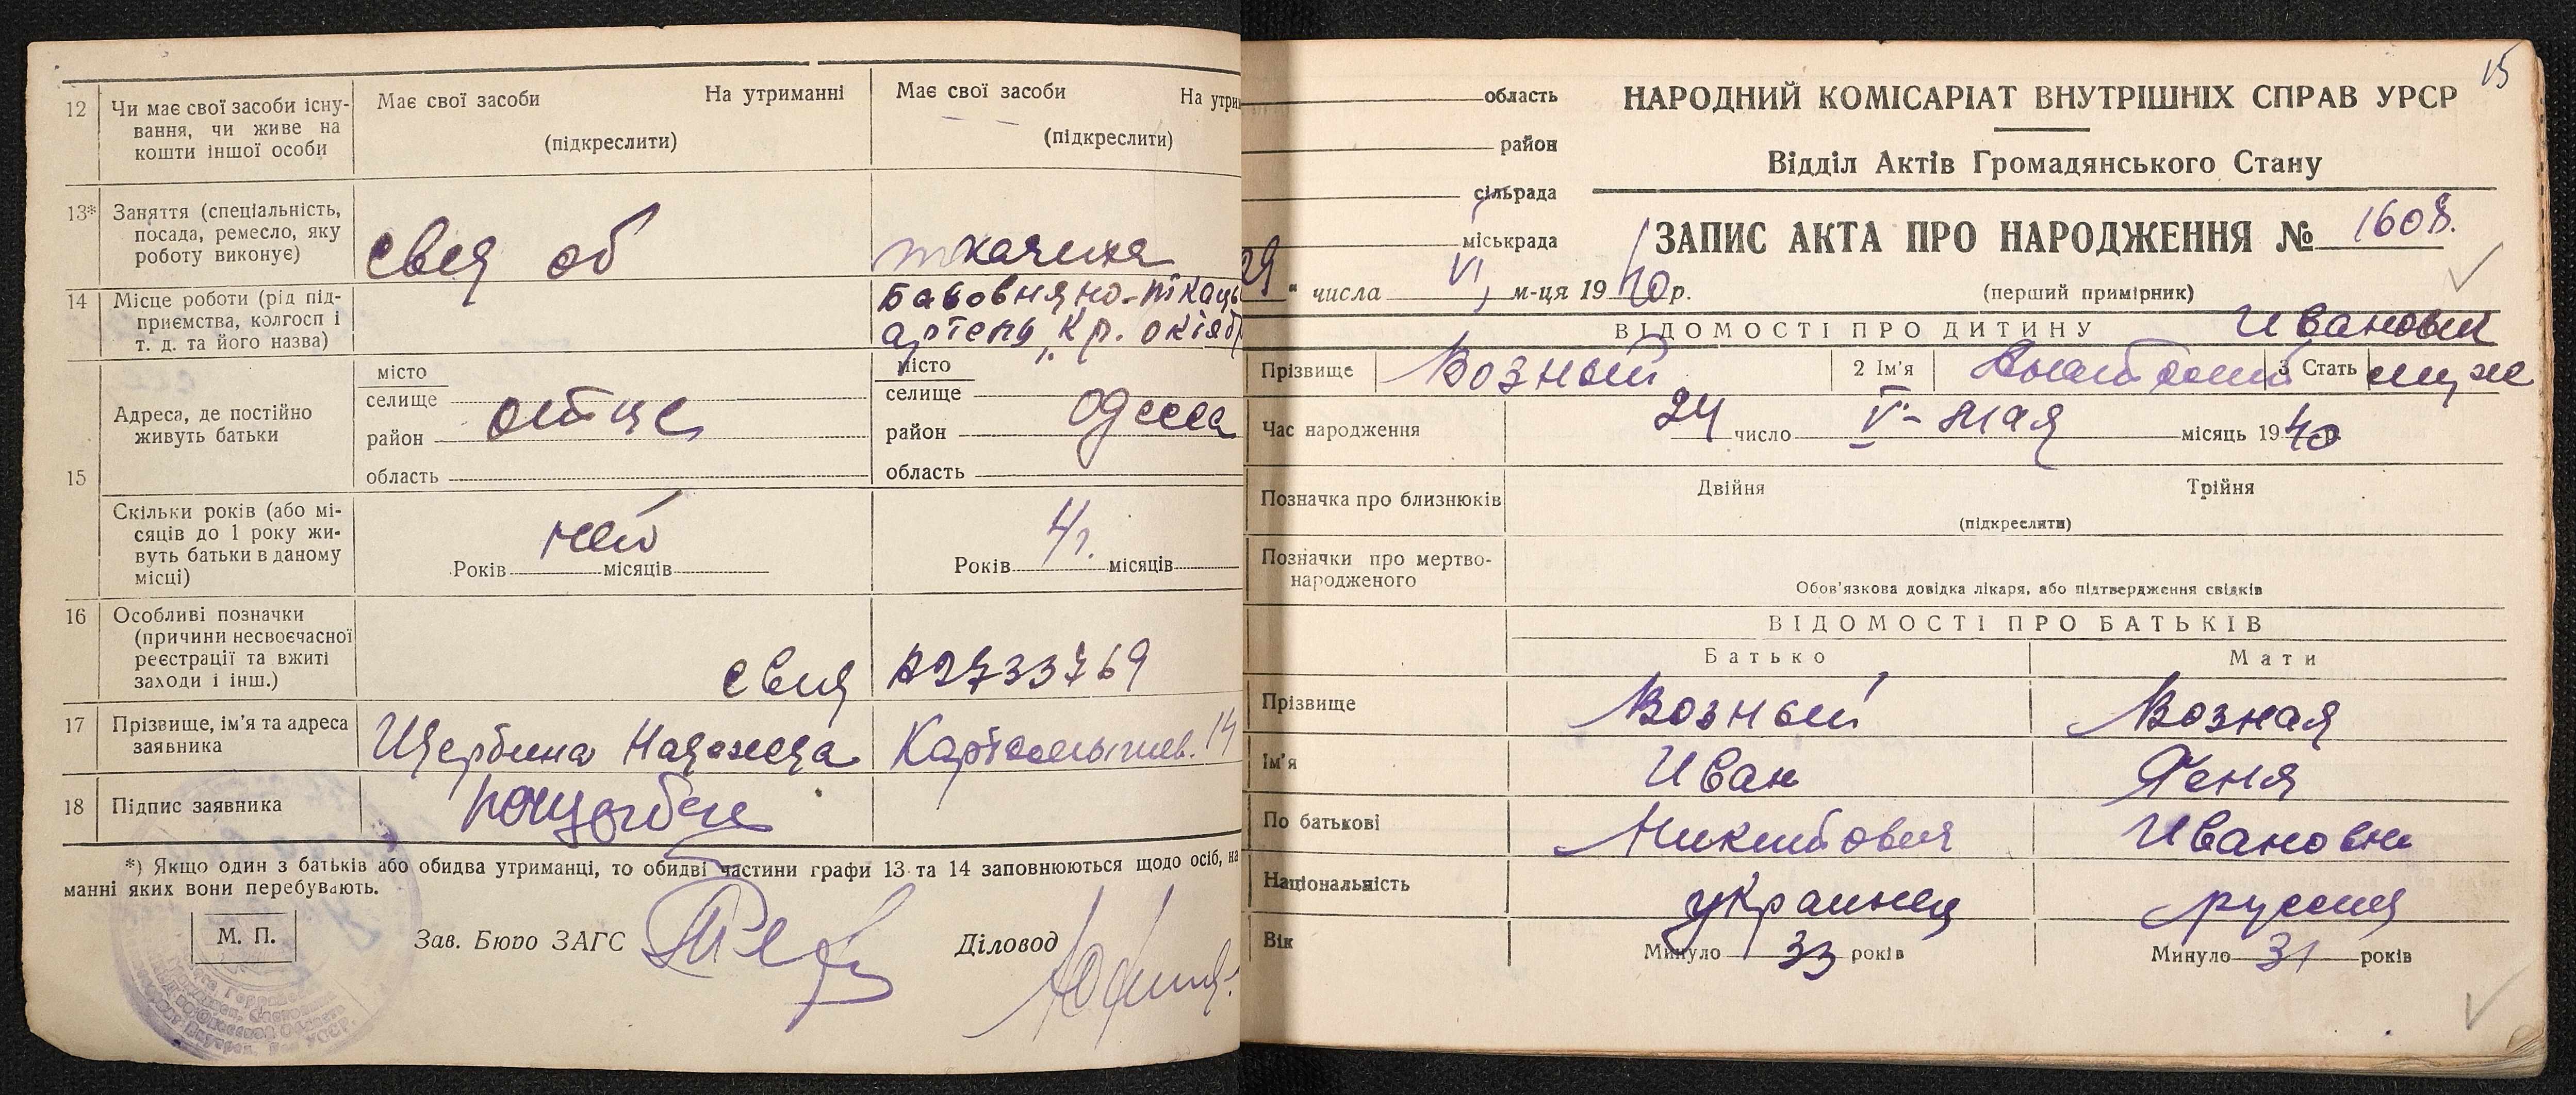 12 Чи має свої засоби існування, чи живе на кошти іншої особи
Має свої засоби На утриманні
(підкреслити)
Має свої засоби На утри
(підкреслити)
13* Заняття (спеціальність, посада, ремесло, яку роботу виконує)
ткачиха
14 Місце роботи (рід підприємства, колгосп і т. д. та його назва)
Бавовняно-ткацьк
артель „Кр. октяб
15 Адреса, де постійно живуть батьки
місто
селище
район
область
місто
селище
район Одесса
область
Скільки років (або місяців до 1 року живуть батьки в даному місці)
Років місяців
4 г.
Років місяців
16 Особливі позначки (причини несвоєчасної реєстрації та вжиті заходи і інш.)
17 Прізвище, ім'я та адреса заявника
Щербина Надежда
14
18 Підпис заявника
*) Якщо один з батьків або обидва утриманці, то обидві частини графи 13 та 14 заповнюються щодо осіб, на
манні яких вони перебувають.
М. П.
Зав. Бюро ЗАГС
Діловод
15
область
район
сільрада
міськрада
НАРОДНИЙ КОМІСАРІАТ ВНУТРІШНІХ СПРАВ УРСР
Відділ Актів Громадянського Стану
ЗАПИС АКТА ПРО НАРОДЖЕННЯ № 1608.
29 " числа VI м-ця 1940р.
(перший примірник)
ВІДОМОСТІ ПРО ДИТИНУ
Иванович
Прізвище Возный
2 Ім'я Анатолий
3 Стать муж
Час народження 24 число V - мая місяць 1940 р.
Позначка про близнюків
Двійня Трійня
(підкреслити)
Позначки про мертвонародженого
Обов'язкова довідка лікаря, або підтвердження свідків
ВІДОМОСТІ ПРО БАТЬКІВ
Батько Мати
Прізвище Возный Возная
Ім'я Иван Геня
По батькові Никитович Ивановн
Національність украинец русская
Вік Минуло 33 років Минуло 31 років